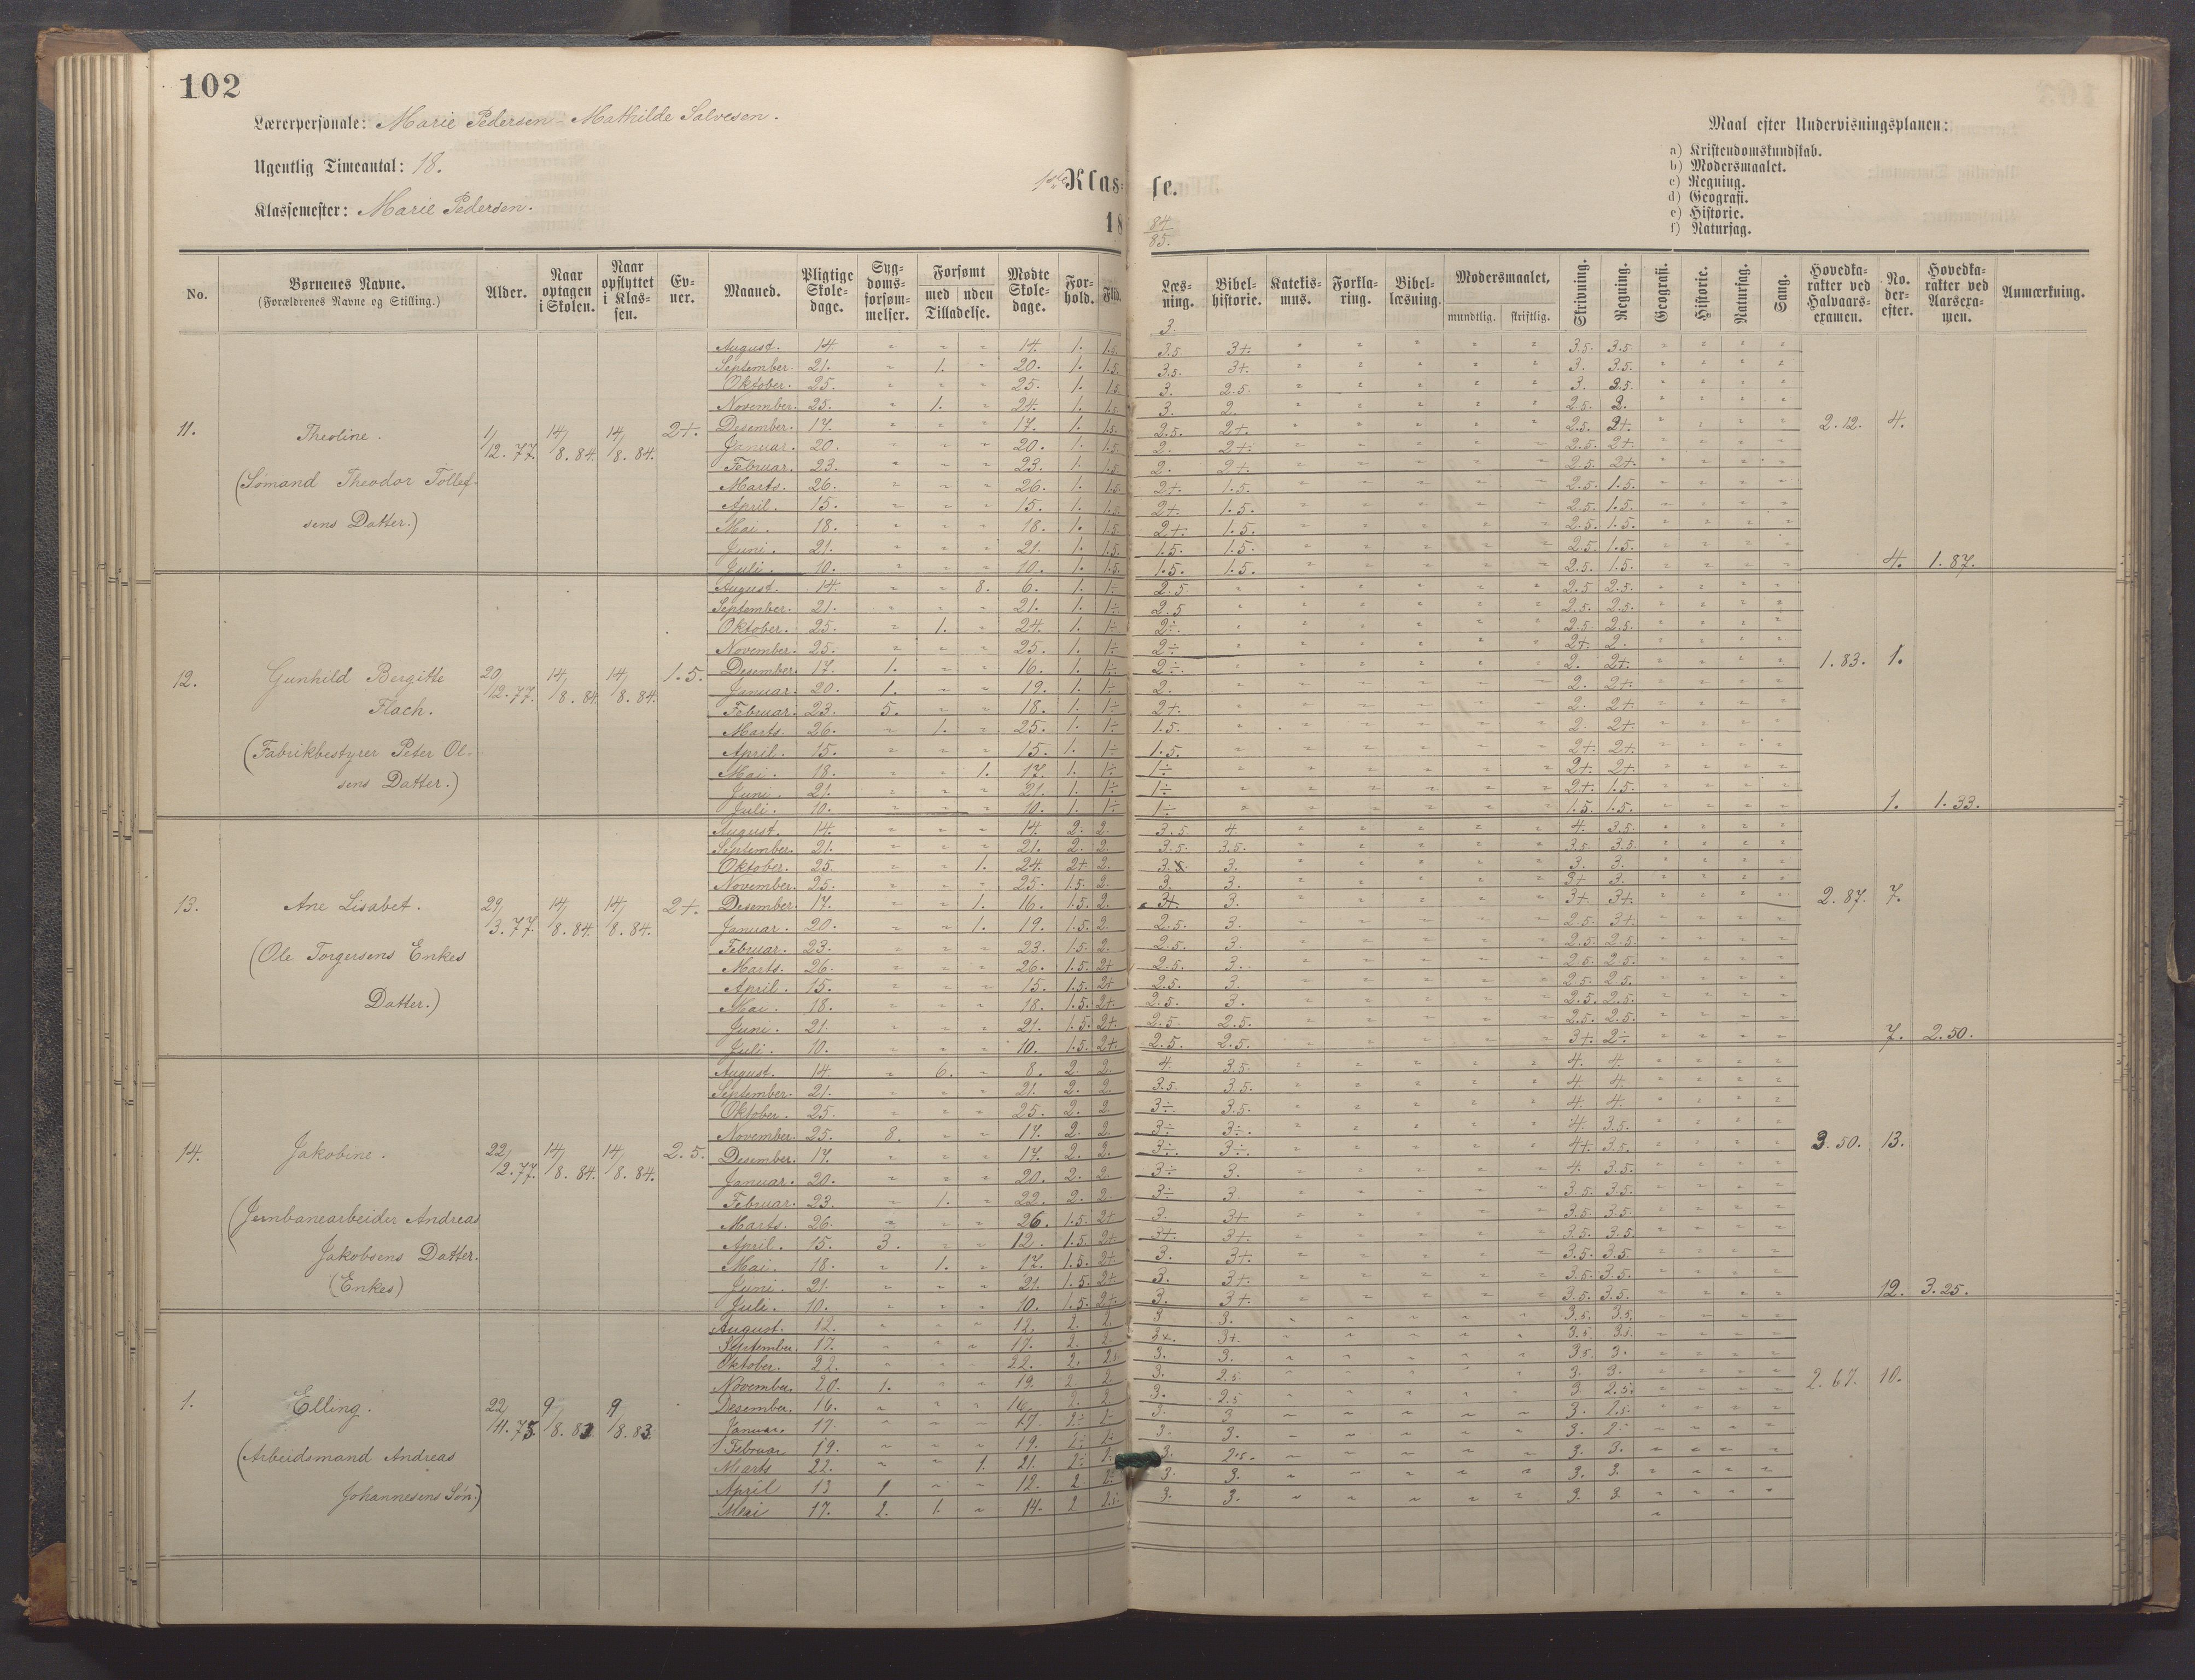 102
Lærerpersonale: Marie Pedersen - Mathilde Salvesen.
Ugentlig Timeantal: 18.
Klassemester: Marie Pedersen.
1ste Klasse.
18 84/85.
Maal efter Undervisningsplanen:
a) Kristendomskundskab.
b) Modersmaalet.
c) Regning.
d) Geografi.
e) Historie.
f) Naturfag.
No. Børnenes Navne. (Forældrenes Navne og Stilling.) Alder. Naar optagen i Skolen. Naar opflyttet i Klassen. Evner. Maaned. Pligtige Skoledage. Sygdomsforsømmelser. Forsømt med uden Tilladelse. Mødte Skoledage. Forhold. Flid. Læsning. Bibelhistorie. Katekismus. Forklaring. Bibellæsning. Modersmaalet, mundtlig. skriftlig. Skrivning. Regning. Geografi. Historie. Naturfag. Sang. Hovedkarakter ved Halvaarsexamen. No. derefter. Hovedkarakter ved Aarsexamen. Anmærkning.
3.
11. Theoline. 1/12.77. 14/8.84. 14/8.84. 2+. 2.12. 4.
(Sømand Theodor Tollefsens Datter.)
August. 14. " " " 14. 1. 1.5. 3.5. 3+. 3.5. 3.5.
September. 21. " 1. " 20. 1. 1.5. 3.5. 3+. 3. 3.5.
Oktober. 25. " " " 25. 1. 1.5. 3. 2.5. 3. 3.5.
November. 25. " 1. " 24. 1. 1.5. 3. 2. 2.5. 3.
Desember. 17. " " " 17. 1. 1.5. 2.5. 2+. 2.5. 2+.
Januar. 20. " " " 20. 1. 1.5. 2. 2+. 2.5. 2+.
Februar. 23. " " " 23. 1. 1.5. 2. 2+. 2.5. 2+.
Marts. 26. " " " 26. 1. 1.5. 2+. 1.5. 2.5. 1.5.
April. 15. " " " 15. 1. 1.5. 2+. 1.5. 2.5. 1.5.
Mai. 18. " " " 18. 1. 1.5. 2+. 1.5. 2.5. 1.5.
Juni. 21. " " " 21. 1. 1.5. 1.5. 1.5. 2.5. 1.5.
Juli. 10. " " " 10. 1. 1.5. 1.5. 1.5. 2.5. 1.5. 4. 1.87.
12. Gunhild Bergitte Flach. 20/12.77. 14/8.84. 14/8.84. 1.5. 1.83. 1.
(Fabrikbestyrer Peter Olsens Datter.)
August. 14. " " 8. 6. 1. 1÷ 2.5 2.5 2.5.
September. 21. " " " 21. 1. 1÷ 2.5 2.5. 2.5.
Oktober. 25. " 1. " 24. 1. 1÷ 2÷. 2.5. 2.5.
November. 25. " " " 25. 1. 1÷ 2÷ 2+. 2.
Desember. 17. 1. " " 16. 1. 1÷ 2÷ 2. 2+.
Januar. 20. 1. " " 19. 1. 1÷ 2. 2. 2+.
Februar. 23. 5. " " 18. 1. 1÷ 2+. 2. 2+
Marts. 26. " 1. " 25. 1. 1÷ 1.5. 2. 2+
April. 15. " " " 15. 1. 1÷ 1.5. 2+. 2+.
Mai. 18. " " 1. 17. 1. 1÷ 1÷ 2+. 2+.
Juni. 21. " " " 21. 1. 1÷ 1÷ 2+. 1.5.
Juli. 10. " " " 10. 1. 1÷ 1÷ 1.5. 1.5. 1. 1.33.
13. Ane Lisabet. 29/3.77. 14/8.84. 14/8.84. 2+. 2.87. 7.
(Ole Torgersens Enkes Datter.)
August. 14. " " " 14. 2. 2. 3.5. 4. 4. 3.5.
September. 21. " " " 21. 2. 2. 3.5. 3.5. 3.5. 3.5.
Oktober. 25. " " 1. 24. 2+ 2. 3. 3. 3. 3.
November. 25. " " " 25. 1.5. 2. 3. 3. 3+ 3.
Desember. 17. " " 1. 16. 1.5. 2. 3+. 3. 3+. 3+.
Januar. 20. " " 1. 19. 1.5. 2. 2.5. 3. 2.5. 3+
Februar. 23. " " " 23. 1.5. 2. 2.5. 3. 2.5. 2.5.
Marts. 26. " " " 26. 1.5. 2+ 2.5. 3. 2.5. 2.5.
April. 15. " " " 15. 1.5. 2+ 2.5. 3. 2.5. 2.5.
Mai. 18. " " " 18. 1.5. 2+. 2.5. 3. 2.5. 2.5.
Juni. 21. " " " 21. 1.5. 2+. 2.5 2.5. 2.5. 2.5.
Juli. 10. " " " 10. 1.5. 2+. 2.5. 2.5. 3+. 2÷. 7. 2.50.
14. Jakobine. 22/2.77. 14/8.84. 14/8.84. 2.5. 3.50. 13.
(Jernbanearbeider Andreas Jakobsens Datter.
(Enkes)
August. 14. " 6. " 8. 2. 2. 4. 3.5. 4. 4.
September. 21. " " " 21. 2. 2. 3.5. 3.5. 4. 4.
Oktober. 25. " " " 25. 2. 2. 3÷. 3.5. 4. 4.
November. 25. 8. " " 17. 2. 2. 3÷ 3÷. 4. 3.5.
Desember. 17. " " " 17. 2. 2. 3÷. 3÷. 4+. 3.5.
Januar. 20. " " " 20. 2. 2. 3÷ 3. 4. 3.5.
Februar. 23. " 1. " 22. 2. 2. 3÷ 3. 3.5. 3.5.
Marts. 26. " " " 26. 1.5. 2+ 3. 3+ 3.5. 3.5.
April. 15. 3. " " 12. 1.5. 2+ 3+. 3+. 3.5. 3.5.
Mai. 18. " 1. " 17. 1.5. 2+ 3. 3+ 3.5. 3.5.
Juni. 21. " " " 21. 1.5. 2+ 3. 3+. 3.5. 3.5.
Juli. 10. " " " 10. 1.5. 2+. 3. 3+. 3.5. 3.5. 12. 3.25.
1. Elling. 22/11.75. 9/8.83. 9/8.83. 2.67. 10.
(Arbeidsmand Andreas Johannesens Søn.)
August. 12. " " " 12. 2. 2. 3 3. 3.5. 3.5.
September. 17. " " " 17. 2. 2. 3+. 3.5
Oktober. 22. " " " 22. 2. 3. 3. 3.5. 3.
November. 20. 1. " " 19. 2. 2. 3. 2.5. 3. 3.
Desember. 16. " " " 16. 2. 2. 3. 2.5 3 2.5.
Januar. 17. " " " 17. 3. 3 3.
Februar 19. " " " 19. 3. 3. 3.
Marts 22. " " 1. 21. 3. 2.5. 3. 3.
April 13 1 " " 12. 2 3. 3. 3. 3.
Mai 17. 2. 1. " 14. 2 3. 3. 3. 3